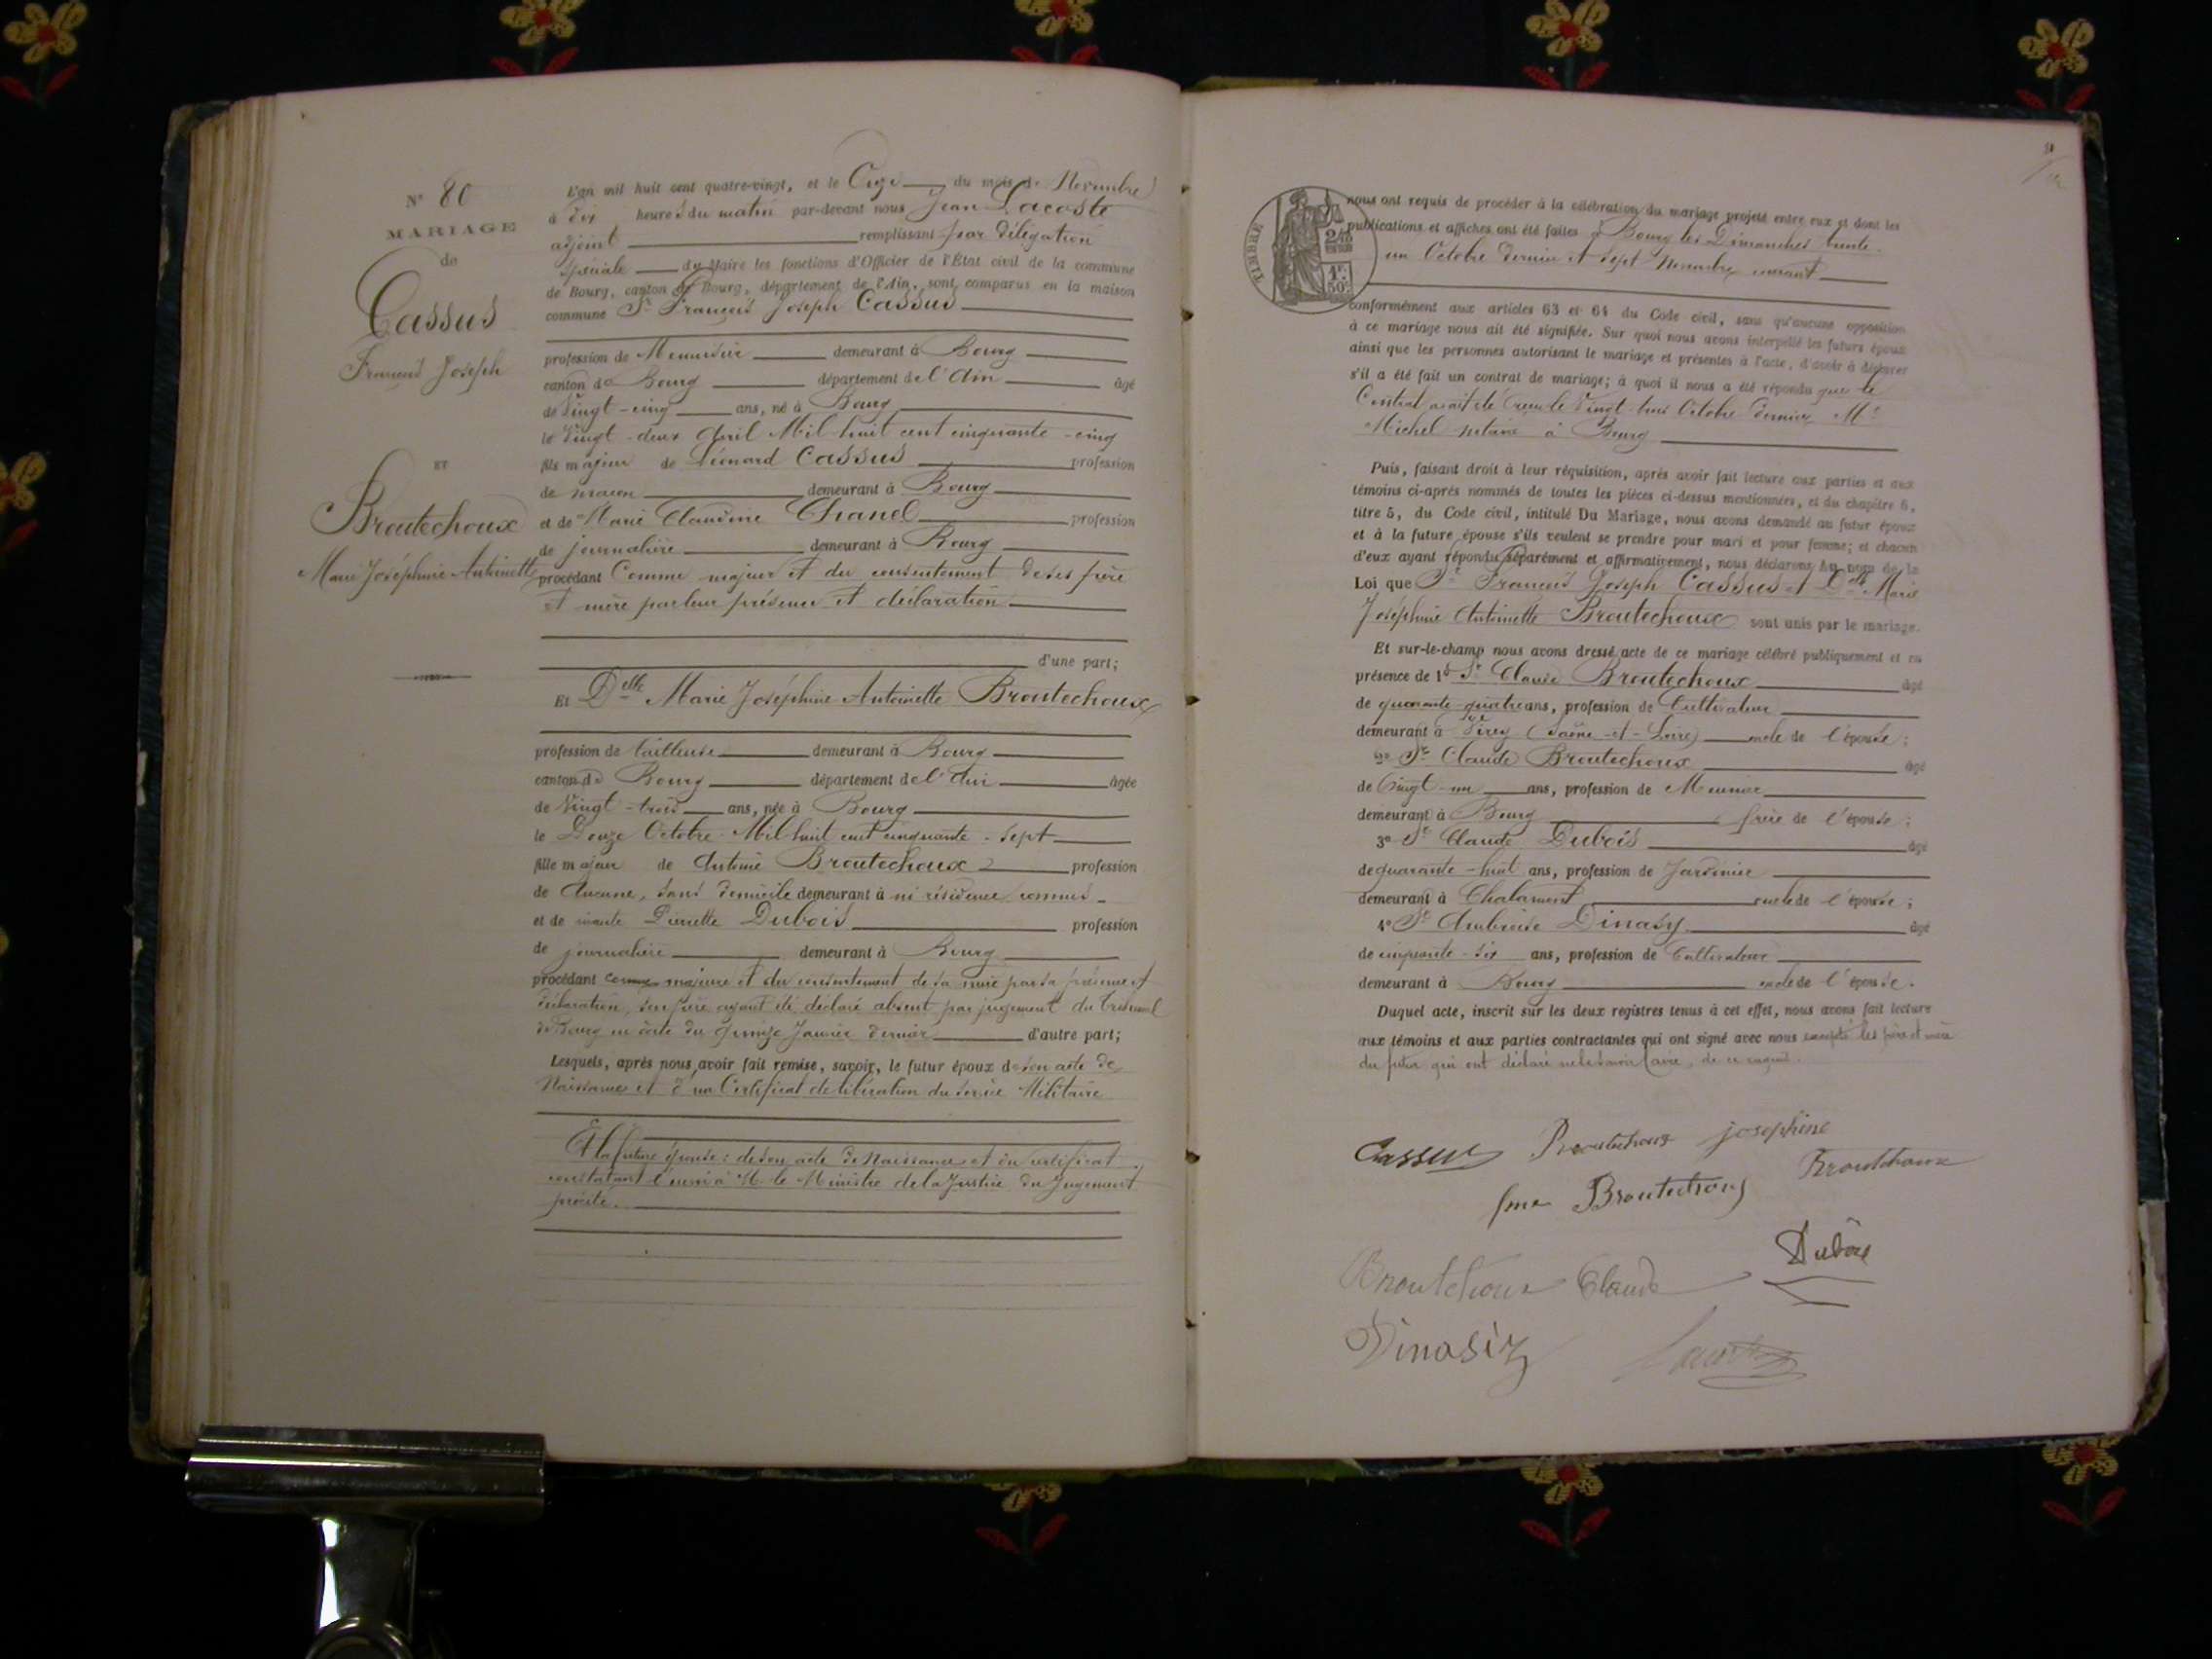 N° 80
MARIAGE
de
Cassus
François Joseph
ET
Broutechoux
Marie Joséphine Antoinette
L'an mil huit cent quatre-vingt, et le Onze du mois de Novembre
à dix heures du matin par-devant nous Jean Lacoste
adjoint remplissant par délégation
spéciale du Maire les fonctions d'Officier de l'État civil de la commune
de Bourg, canton de Bourg, département de l'Ain, sont comparus en la maison
commune Sr François Joseph Cassus
profession de Menuisier demeurant à Bourg
canton de Bourg département de l'Ain âgé
de Vingt-cinq ans, né à Bourg
le Vingt-deux Avril Mil huit cent cinquante-cinq
fils majeur de Léonard Cassus profession
de maçon demeurant à Bourg
et de Marie Claudine Chanel profession
de journalière demeurant à Bourg
procédant Comme majeur et du consentement de ses père
et mère par leur présence et déclaration
d'une part;
Et Delle Marie Joséphine Antoinette Broutechoux
profession de tailleuse demeurant à Bourg
canton de Bourg département de l'Ain âgée
de Vingt-trois ans, née à Bourg
le Douze Octobre Mil huit cent cinquante-sept
fille majeur de Antoine Broutechoux profession
de Aucune, sans domicile demeurant à ni résidence connus
et de vivante Pierrette Dubois profession
de journalière demeurant à Bourg
procédant comme majeure et du consentement de sa mère par sa présence et
déclaration, son père ayant été déclaré absent par jugement du tribunal
de Bourg en date du quinze Janvier dernier d'autre part;
Lesquels, après nous avoir fait remise, savoir, le futur époux de son acte de
Naissance et d'un Certificat de libération du service Militaire
Et la future épouse: de son acte de Naissance et du certificat
constatant l'envoi à M. le Ministre de la Justice du Jugement
précité.
TIMBRE
1F.
50c.
nous ont requis de procéder à la célébration du mariage projeté entre eux et dont les
publications et affiches ont été faites à Bourg les Dimanches trente-
un Octobre dernier et sept Novembre courant
conformément aux articles 63 et 64 du Code civil, sans qu'aucune opposition
à ce mariage nous ait été signifiée. Sur quoi nous avons interpellé les futurs époux
ainsi que les personnes autorisant le mariage et présentes à l'acte, d'avoir à déclarer
s'il a été fait un contrat de mariage; à quoi il nous a été répondu que le
Contrat avait été reçu le Vingt-huit Octobre dernier Me
Michel notaire à Bourg
Puis, faisant droit à leur réquisition, après avoir fait lecture aux parties et aux
témoins ci-après nommés de toutes les pièces ci-dessus mentionnées, et du chapitre 6,
titre 5, du Code civil, intitulé Du Mariage, nous avons demandé au futur époux
et à la future épouse s'ils veulent se prendre pour mari et pour femme; et chacun
d'eux ayant répondu séparément et affirmativement, nous déclarons au nom de la
Loi que Sr François Joseph Cassus et Delle Marie
Joséphine Antoinette Broutechoux sont unis par le mariage.
Et sur-le-champ nous avons dressé acte de ce mariage célébré publiquement et en
présence de 1° Sr Claude Broutechoux âgé
de quarante-quatre ans, profession de Cultivateur
demeurant à (Saône-et-Loire) oncle de l'épouse;
2° Sr Claude Broutechoux âgé
de Vingt-un ans, profession de Meunier
demeurant à Bourg frère de l'épouse;
3° Sr Claude Dubois âgé
de quarante-huit ans, profession de Jardinier
demeurant à Chalamont oncle de l'épouse;
4° Sr Ambroise Dinasy âgé
de cinquante-six ans, profession de Cultivateur
demeurant à Bourg oncle de l'épouse.
Duquel acte, inscrit sur les deux registres tenus à cet effet, nous avons fait lecture
aux témoins et aux parties contractantes qui ont signé avec nous excepté les père et mère
du futur qui ont déclaré ne le savoir faire, de ce requis.
Cassus Broutechoux josephine
fme Broutechoux Broutechoux
Dubois
Broutchoux Claude
Dinasiz Lacoste